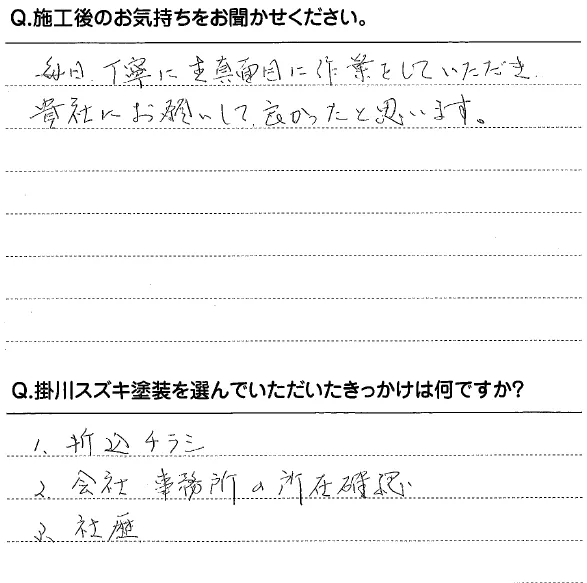 Q.施工後のお気持ちをお聞かせください。
毎日、丁寧に生真面目に作業をしていただき、
貴社にお願いして、良かったと思います。
Q.掛川スズキ塗装を選んでいただいたきっかけは何ですか?
1、折込チラシ
2、会社 事務所の所在確認
3、社歴